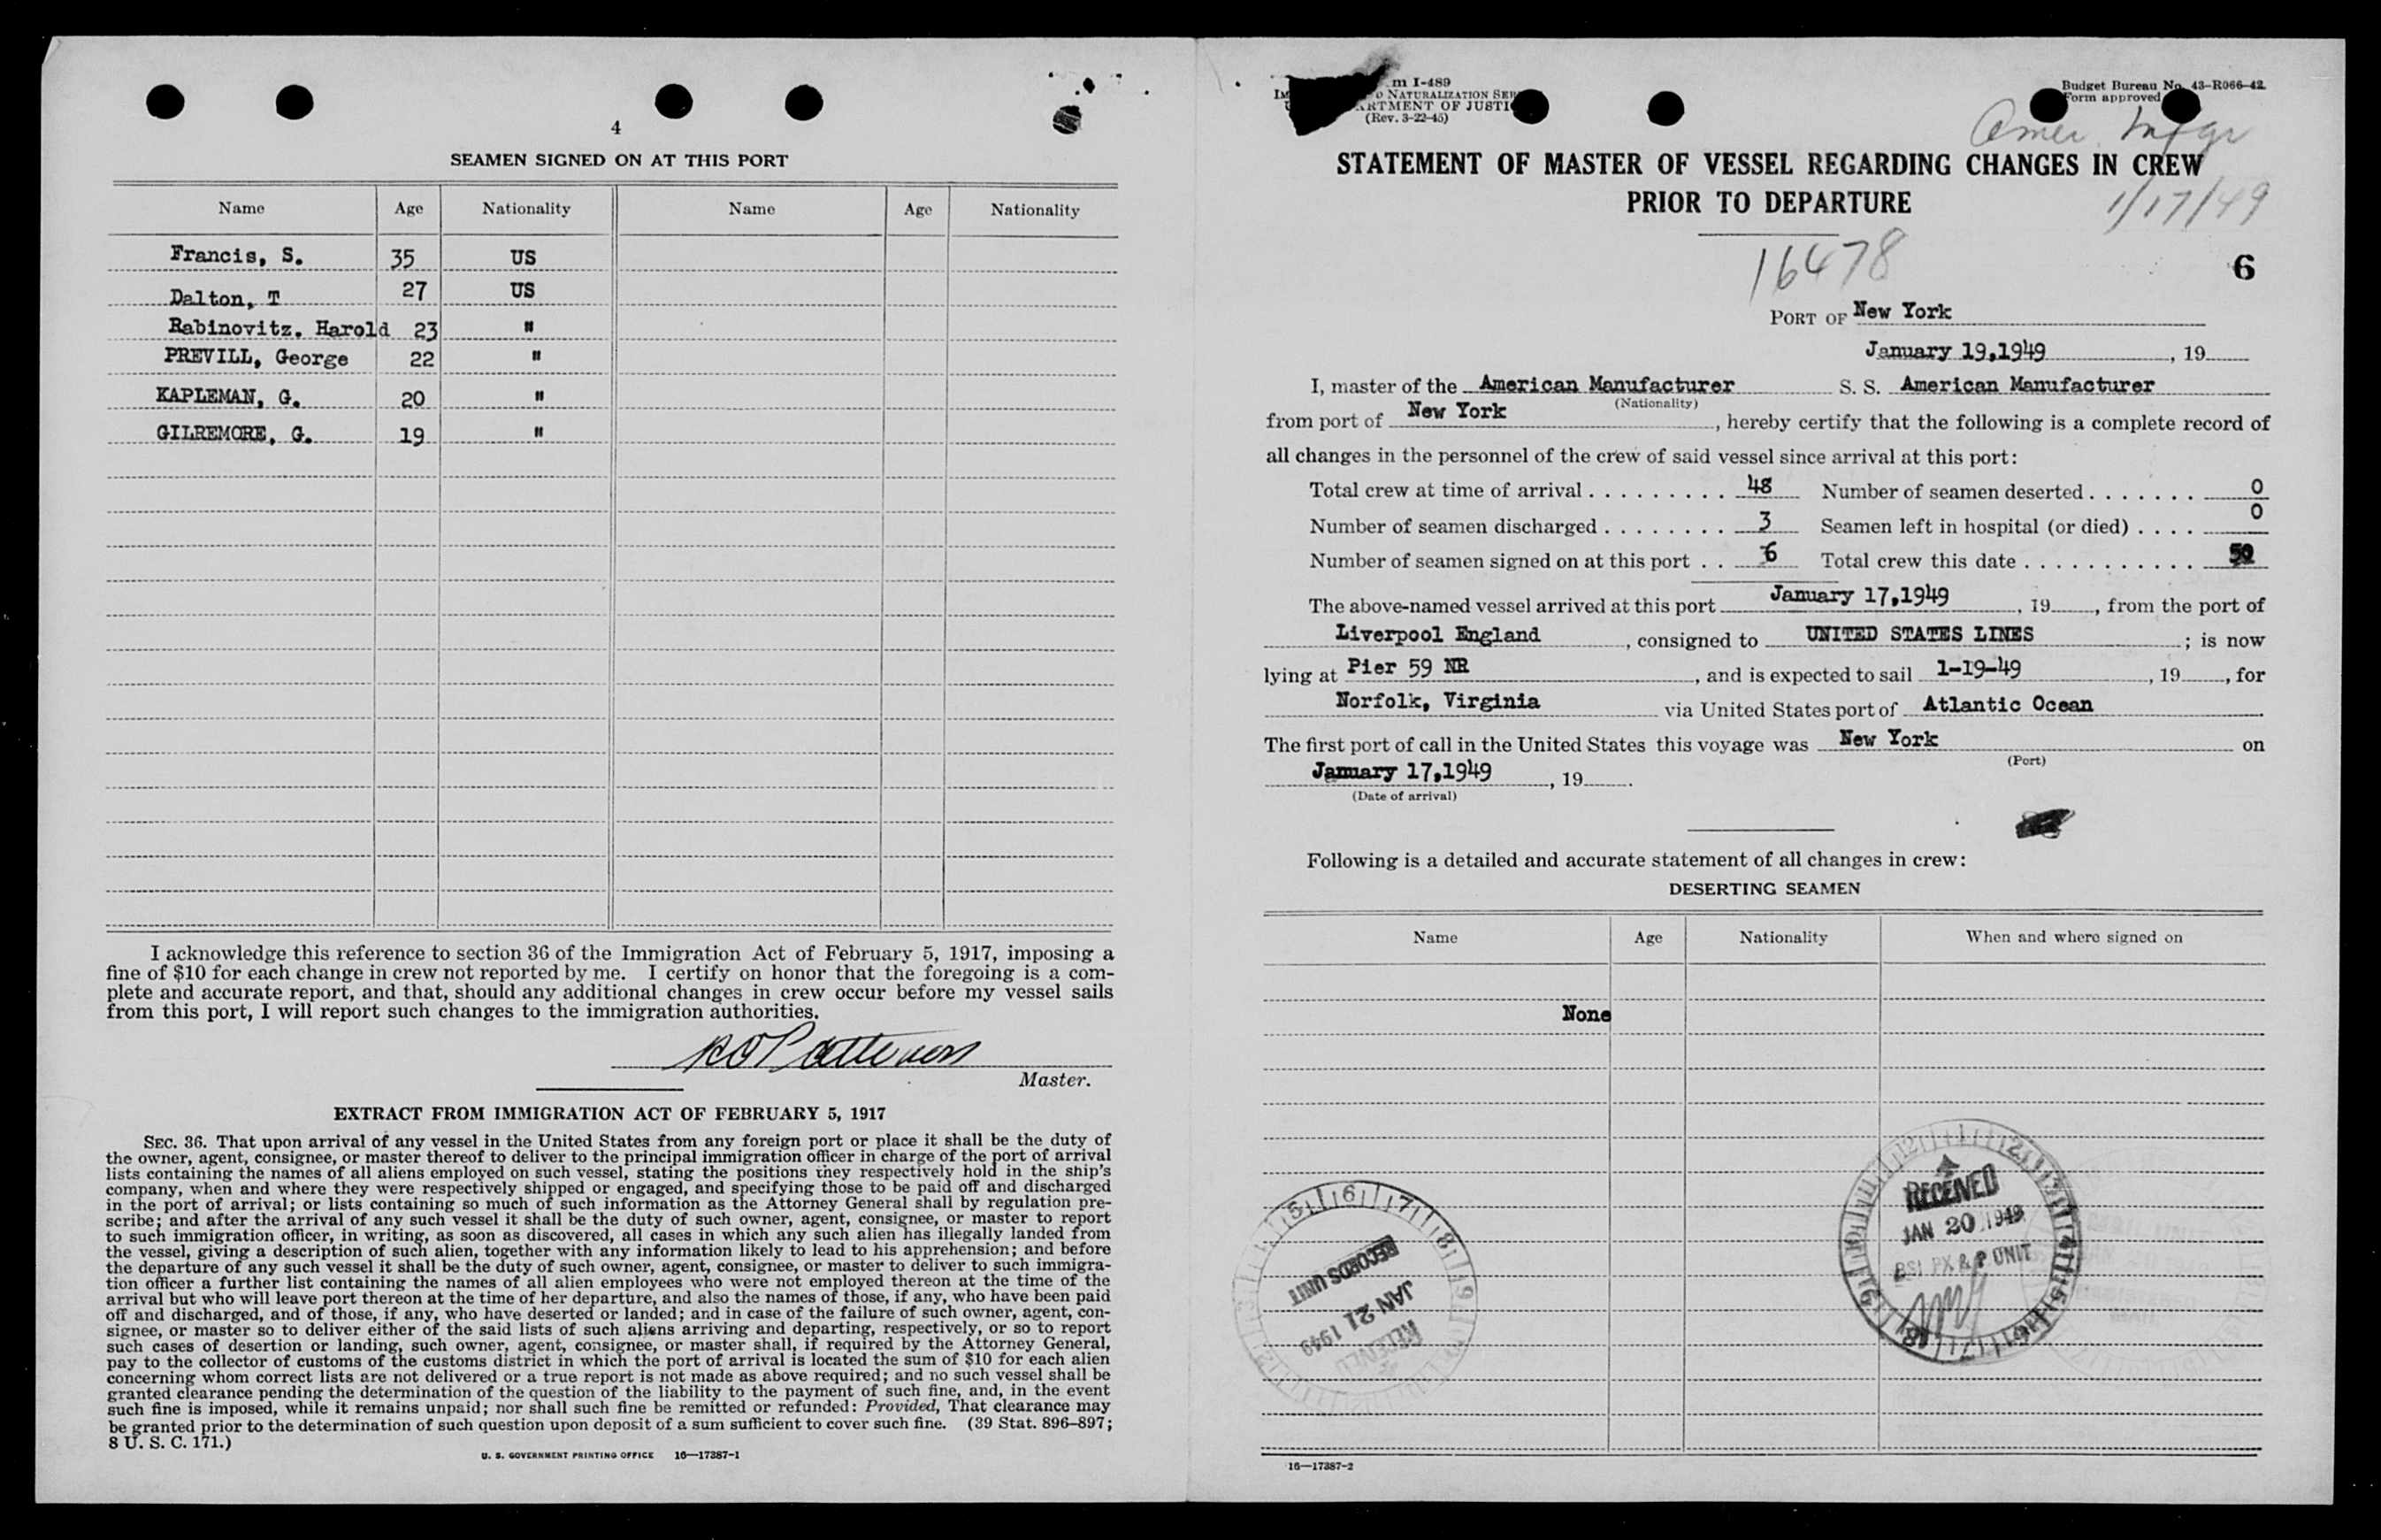 4
SEAMEN SIGNED ON AT THIS PORT
Name Age Nationality Name Age Nationality
Francis, S. 35 US
Dalton, T 27 US
Rabinovitz. Harold 23 "
PREVILL, George 22 "
KAPLEMAN, G. 20 "
GILREMORE, G. 19 "
I acknowledge this reference to section 36 of the Immigration Act of February 5, 1917, imposing a
fine of $10 for each change in crew not reported by me. I certify on honor that the foregoing is a com-
plete and accurate report, and that, should any additional changes in crew occur before my vessel sails
from this port, I will report such changes to the immigration authorities.
Master.
EXTRACT FROM IMMIGRATION ACT OF FEBRUARY 5, 1917
SEC. 36. That upon arrival of any vessel in the United States from any foreign port or place it shall be the duty of
the owner, agent, consignee, or master thereof to deliver to the principal immigration officer in charge of the port of arrival
lists containing the names of all aliens employed on such vessel, stating the positions they respectively hold in the ship's
company, when and where they were respectively shipped or engaged, and specifying those to be paid off and discharged
in the port of arrival; or lists containing so much of such information as the Attorney General shall by regulation pre-
scribe; and after the arrival of any such vessel it shall be the duty of such owner, agent, consignee, or master to report
to such immigration officer, in writing, as soon as discovered, all cases in which any such alien has illegally landed from
the vessel, giving a description of such alien, together with any information likely to lead to his apprehension; and before
the departure of any such vessel it shall be the duty of such owner, agent, consignee, or master to deliver to such immigra-
tion officer a further list containing the names of all alien employees who were not employed thereon at the time of the
arrival but who will leave port thereon at the time of her departure, and also the names of those, if any, who have been paid
off and discharged, and of those, if any, who have deserted or landed; and in case of the failure of such owner, agent, con-
signee, or master so to deliver either of the said lists of such aliens arriving and departing, respectively, or so to report
such cases of desertion or landing, such owner, agent, consignee, or master shall, if required by the Attorney General,
pay to the collector of customs of the customs district in which the port of arrival is located the sum of $10 for each alien
concerning whom correct lists are not delivered or a true report is not made as above required; and no such vessel shall be
granted clearance pending the determination of the question of the liability to the payment of such fine, and, in the event
such fine is imposed, while it remains unpaid; nor shall such fine be remitted or refunded: Provided, That clearance may
be granted prior to the determination of such question upon deposit of a sum sufficient to cover such fine. (39 Stat. 896–897;
8 U. S. C. 171.)
U. S. GOVERNMENT PRINTING OFFICE 16—17387-1
I-489
NATURALIZATION
OF
(Rev. 3-22-45)
Budget Bureau No. 43-R066-42.
Form approved
Amer. Mfgr
STATEMENT OF MASTER OF VESSEL REGARDING CHANGES IN CREW
PRIOR TO DEPARTURE
1/17/49
16478
6
PORT OF New York
January 19,1949, 19
I, master of the American Manufacturer S. S. American Manufacturer
(Nationality)
from port of New York, hereby certify that the following is a complete record of
all changes in the personnel of the crew of said vessel since arrival at this port:
Total crew at time of arrival . . . . . . . . . 48 Number of seamen deserted . . . . . . . 0
Number of seamen discharged . . . . . . . . 3 Seamen left in hospital (or died) . . . . 0
Number of seamen signed on at this port . . 6 Total crew this date . . . . . . . . . . .
The above-named vessel arrived at this port January 17,1949, 19, from the port of
Liverpool England, consigned to UNITED STATES LINES; is now
lying at Pier 59 NR, and is expected to sail 1-19-49, 19, for
Norfolk, Virginia via United States port of Atlantic Ocean
The first port of call in the United States this voyage was New York on
(Port)
January 17,1949, 19.
(Date of arrival)
Following is a detailed and accurate statement of all changes in crew:
DESERTING SEAMEN
Name Age Nationality When and where signed on
None
RECEIVED
JAN 20 1949
BSI PX & P UNIT
RECORDS UNIT
JAN 21 1949
RECEIVED
16—17387-2